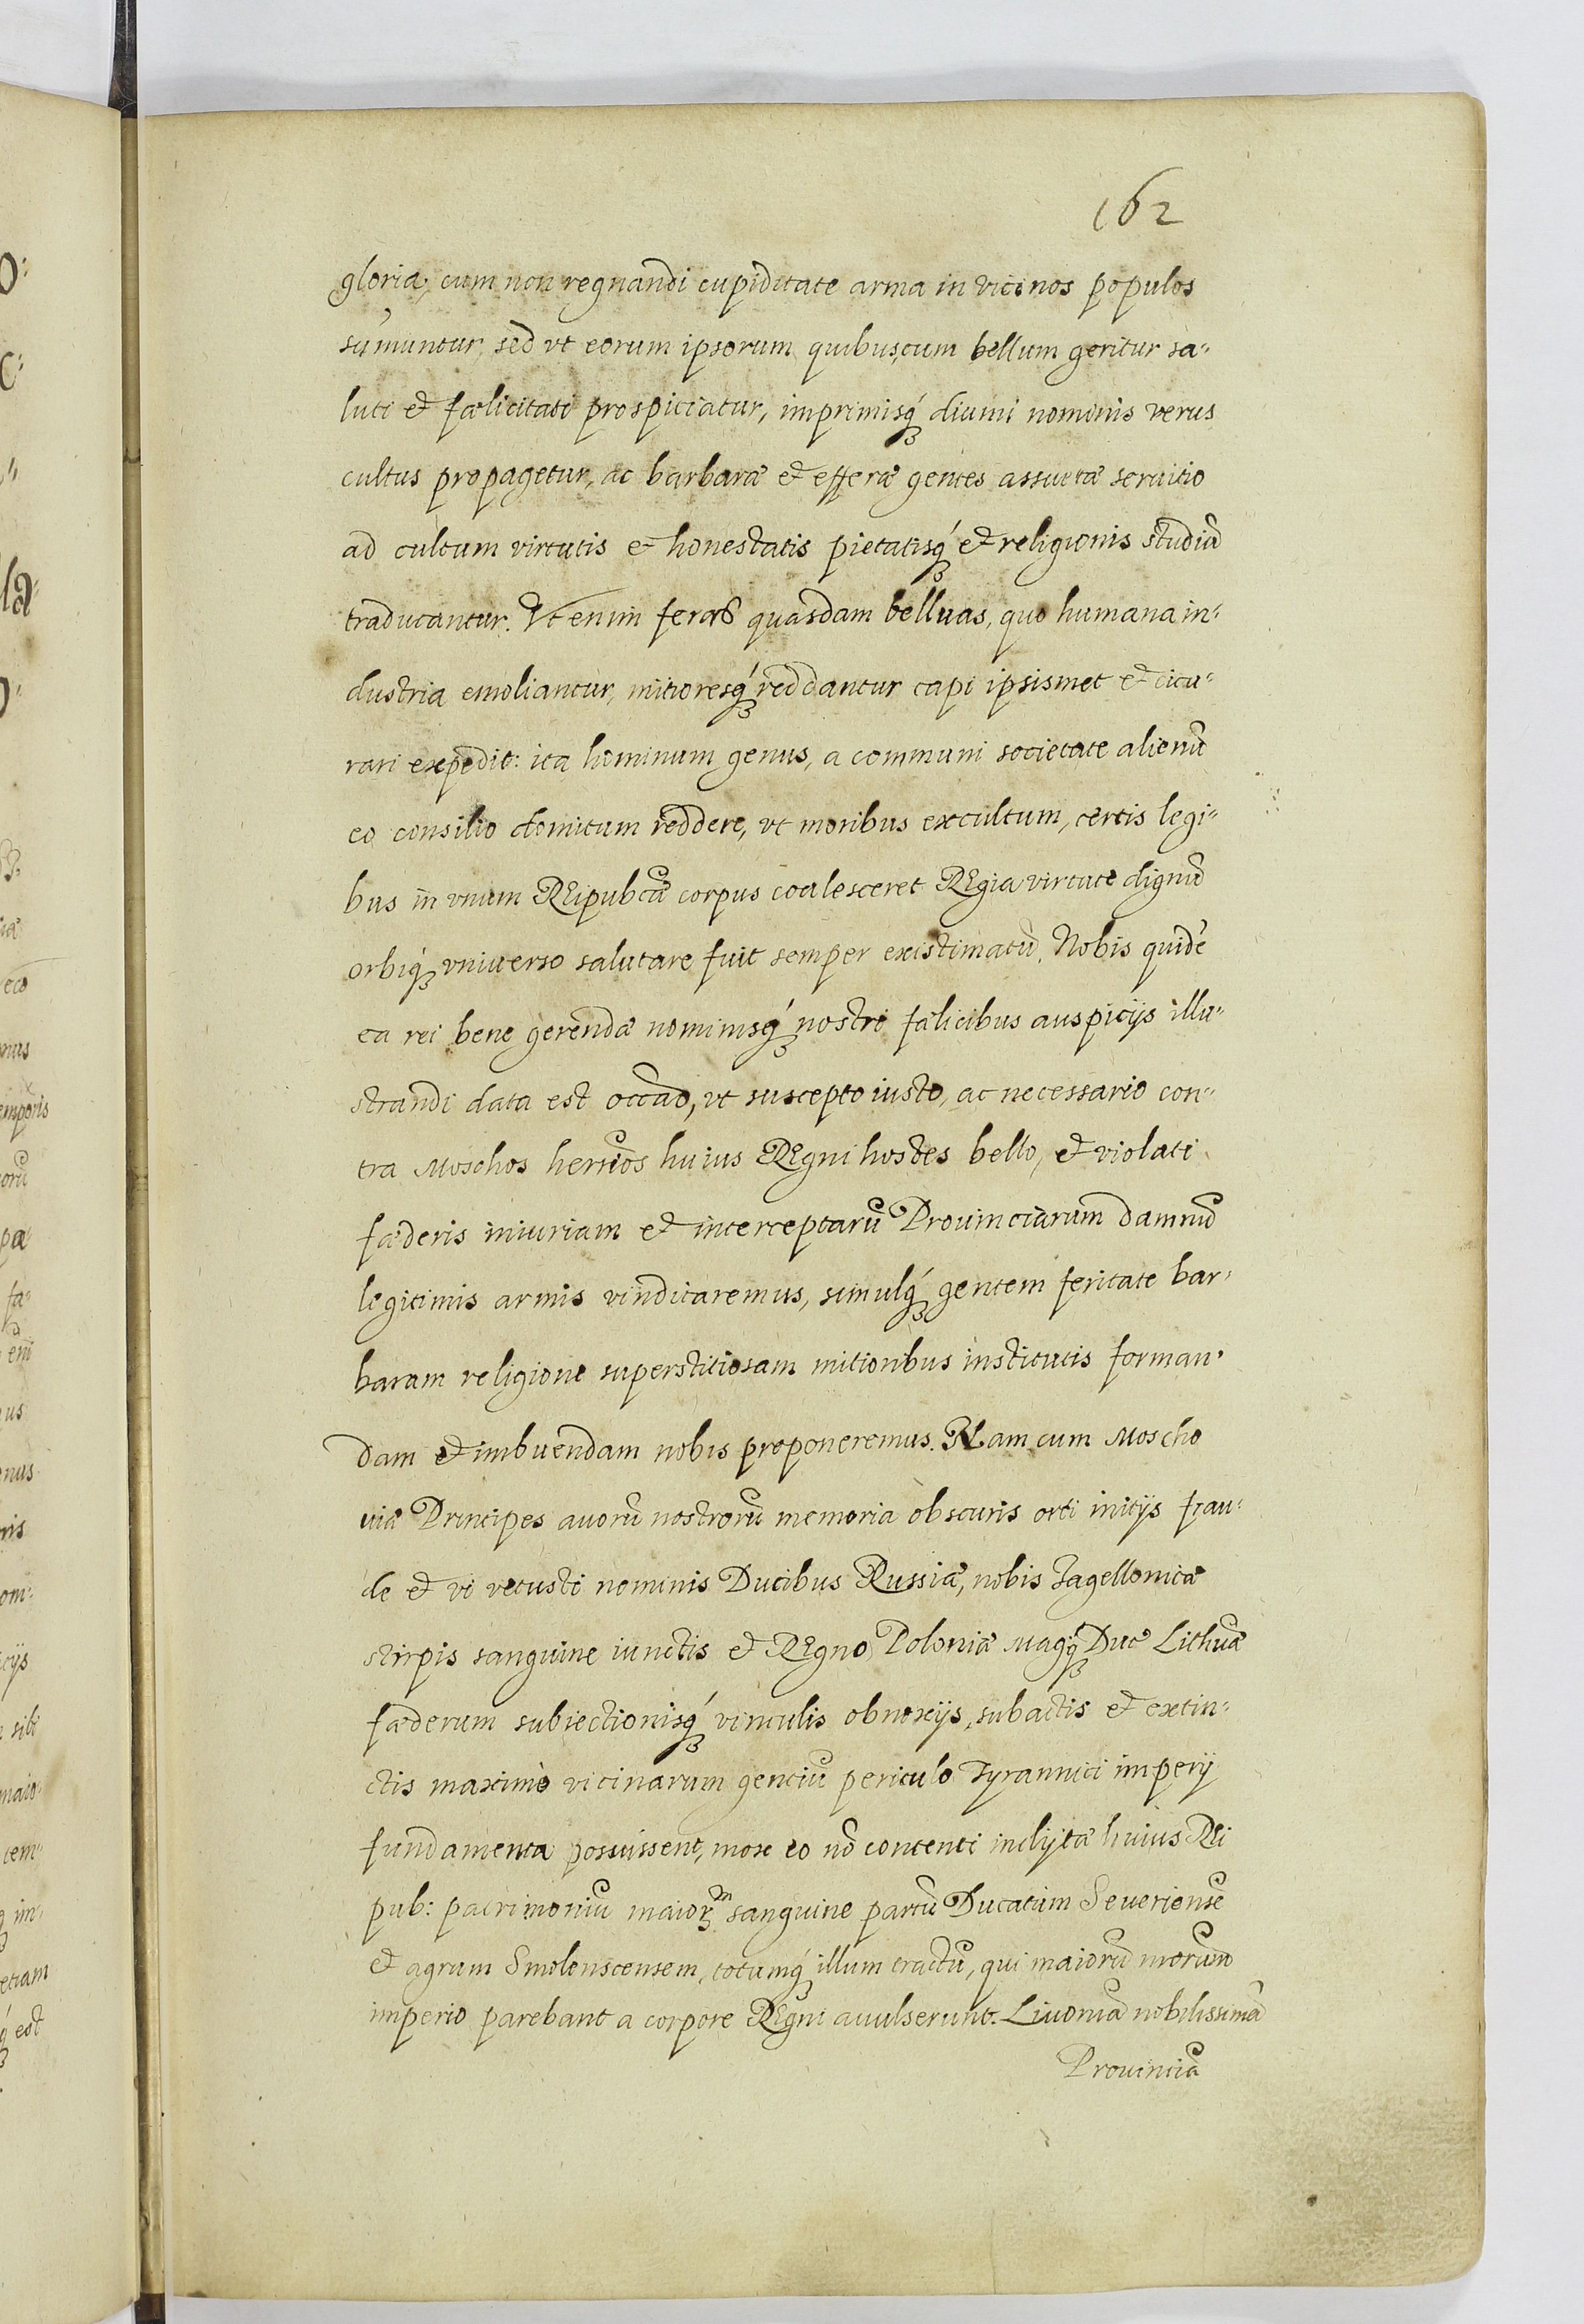 162
gloria, cum non regnandi cupiditate arma in vicinos populos
sumuntur, sed vt eorum ipsorum quibuscum bellum geritur sa-
luti et fælicitati prospiciatur, imprimisq́ꝫ diuini nominis verus
cultus propagetur, ac barbaræ et efferæ gentes assuetæ seruitio
ad cultum virtutis et honestatis pietatisq́ꝫ et religionis studiũ
traducantur. Vt enim feras quasdam belluas, quo humana in-
dustria emoliantur, mitioresq́ꝫ reddantur capi ipsismet et cicu-
rari expedit: ita hominum genus, a communi societate alienũ
eo consilio domitum reddere, vt moribus excultum, certis legi-
bus in vnum REipubcæ corpus coalesceret REgia virtute dignũ
orbiq́ꝫ vniuerso salutare fuit semper existimatũ. Nobis quidẽ
ea rei bene gerendæ nominisq́ꝫ nostri fælicibus auspicijs illu-
strandi data est occão, vt suscepto iusto, ac necessario con-
tra Moschos herrios huius REgni hostes bello, et violati
fæderis iniuriam et interceptarũ Prouinciarum damnũ
legitimis armis vindicaremus, simulq́ꝫ gentem feritate bar-
baram religione superstitiosam mitioribus institutis forman-
dam et imbuendam nobis proponeremus. Nam cum Moscho
uiæ Principes auorũ nostrorũ memoria obscuris orti initijs frau-
de et vi vetusti nominis Ducibus Russiæ, nobis Jagellonicæ
stirpis sanguine iunctis et REgno Poloniæ Magq́ꝫ Duc Lithuæ
fæderum subiectionisq́ꝫ vinculis obnoxijs, subactis et extin-
ctis maximo vicinarum gentiũ periculo Tyrannici imperij
fundamenta posuissent, mox eo nõ contenti inclytæ huius REi
pub: patrimoniũ maiorꝫ sanguine partũ Ducatum Seueriensẽ
et agrum Smolenscensem, totumq́ꝫ illum tractũ, qui maiorũ nrorum
imperio parebant a corpore REgni auulserunt. Liuoniã nobilissimã
Prouinciã